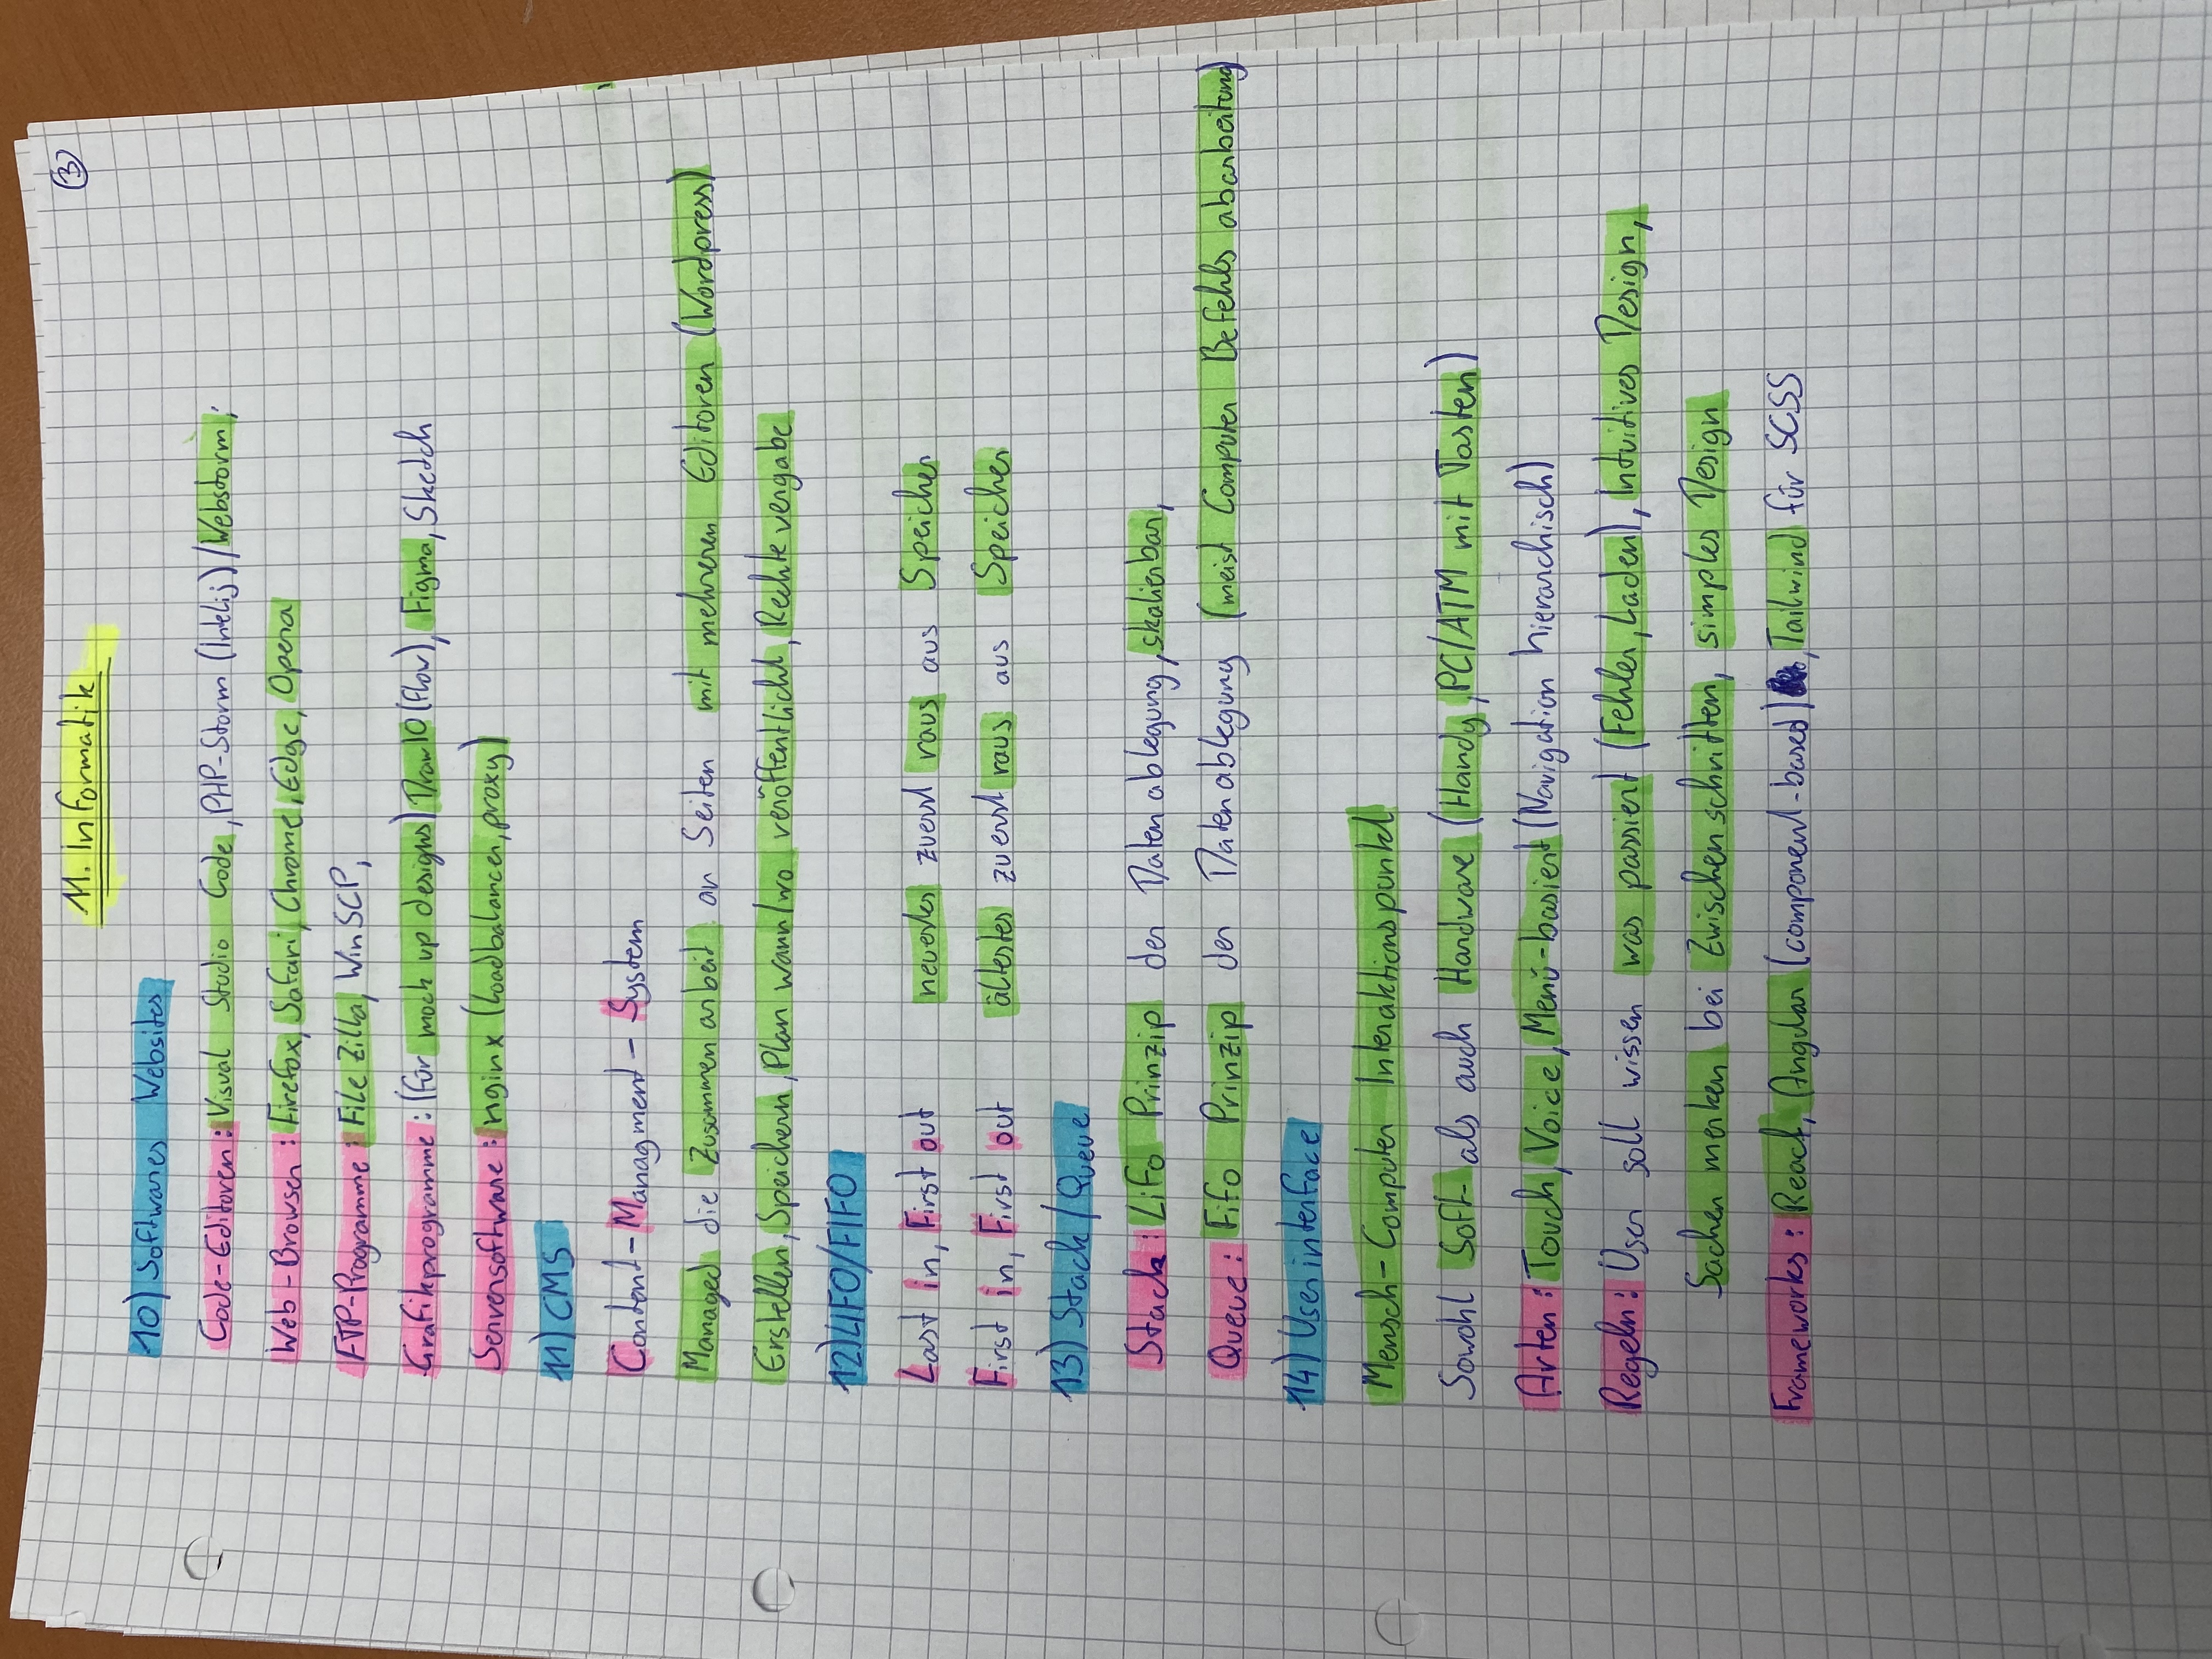 11. Informatik
③
10) Softwares Websites
Code-Editoren: Visual Studio Code, PHP-Storm (Intelij)/Webstorm;
Web-Browser: Firefox, Safari, Chrome, Edge, Opera
FTP-Programme: File Zilla, WinSCP,
Grafikprogramme: (für mock up designs) DrawIO (flow), Figma, Sketch
Serversoftware: nginx (Loadbalancer, proxy)
11) CMS
Content-Managment-System
Managed die Zusammenarbeit an Seiten mit mehreren Editoren (Wordpress)
Erstellen, Speichern, Plan wann/wo veröffentlicht, Rechte vergabe
12) LIFO/FIFO
Last in, First out neuestes zuerst raus aus Speicher
First in, First out ältestes zuerst raus aus Speicher
13) Stack/Queue
Stack: Lifo Prinzip der Datenablegung, skalierbar,
Queue: Fifo Prinzip der Datenablegung (meist Computer Befehls abarbeitung)
14) Userinterface
Mensch-Computer Interaktionspunkt
Sowohl Soft- als auch Hardware (Handy, PC/ATM mit Tasten)
Arten: Touch, Voice, Menü-basiert (Navigation hierarchisch)
Regeln: User soll wissen was passiert (Fehler, Laden), Intuitives Design,
Sachen merken bei Zwischenschritten, simples Design
Frameworks: React, Angular (component-based), Tailwind für SCSS